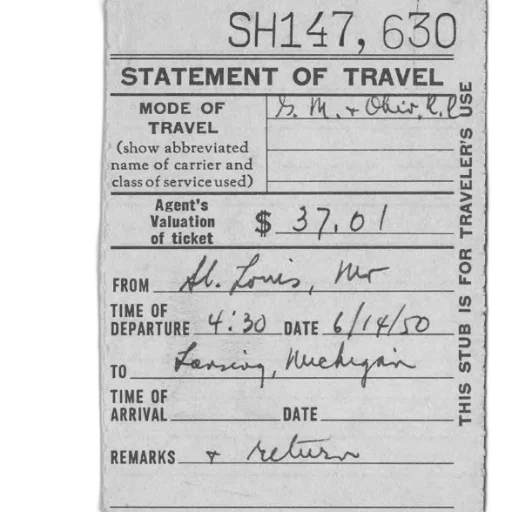 SH147,630
STATEMENT OF TRAVEL
MODE OF
TRAVEL
(show abbreviated
name of carrier and
class of service used)
G. M. + Ohio, R.R
Agent's
Valuation
of ticket
$ 37.01
FROM St. Louis, Mo
TIME OF
DEPARTURE 4:30 DATE 6/14/50
TO Lansing, Michigan
TIME OF
ARRIVAL DATE
REMARKS + return
THIS STUB IS FOR TRAVELER'S USE